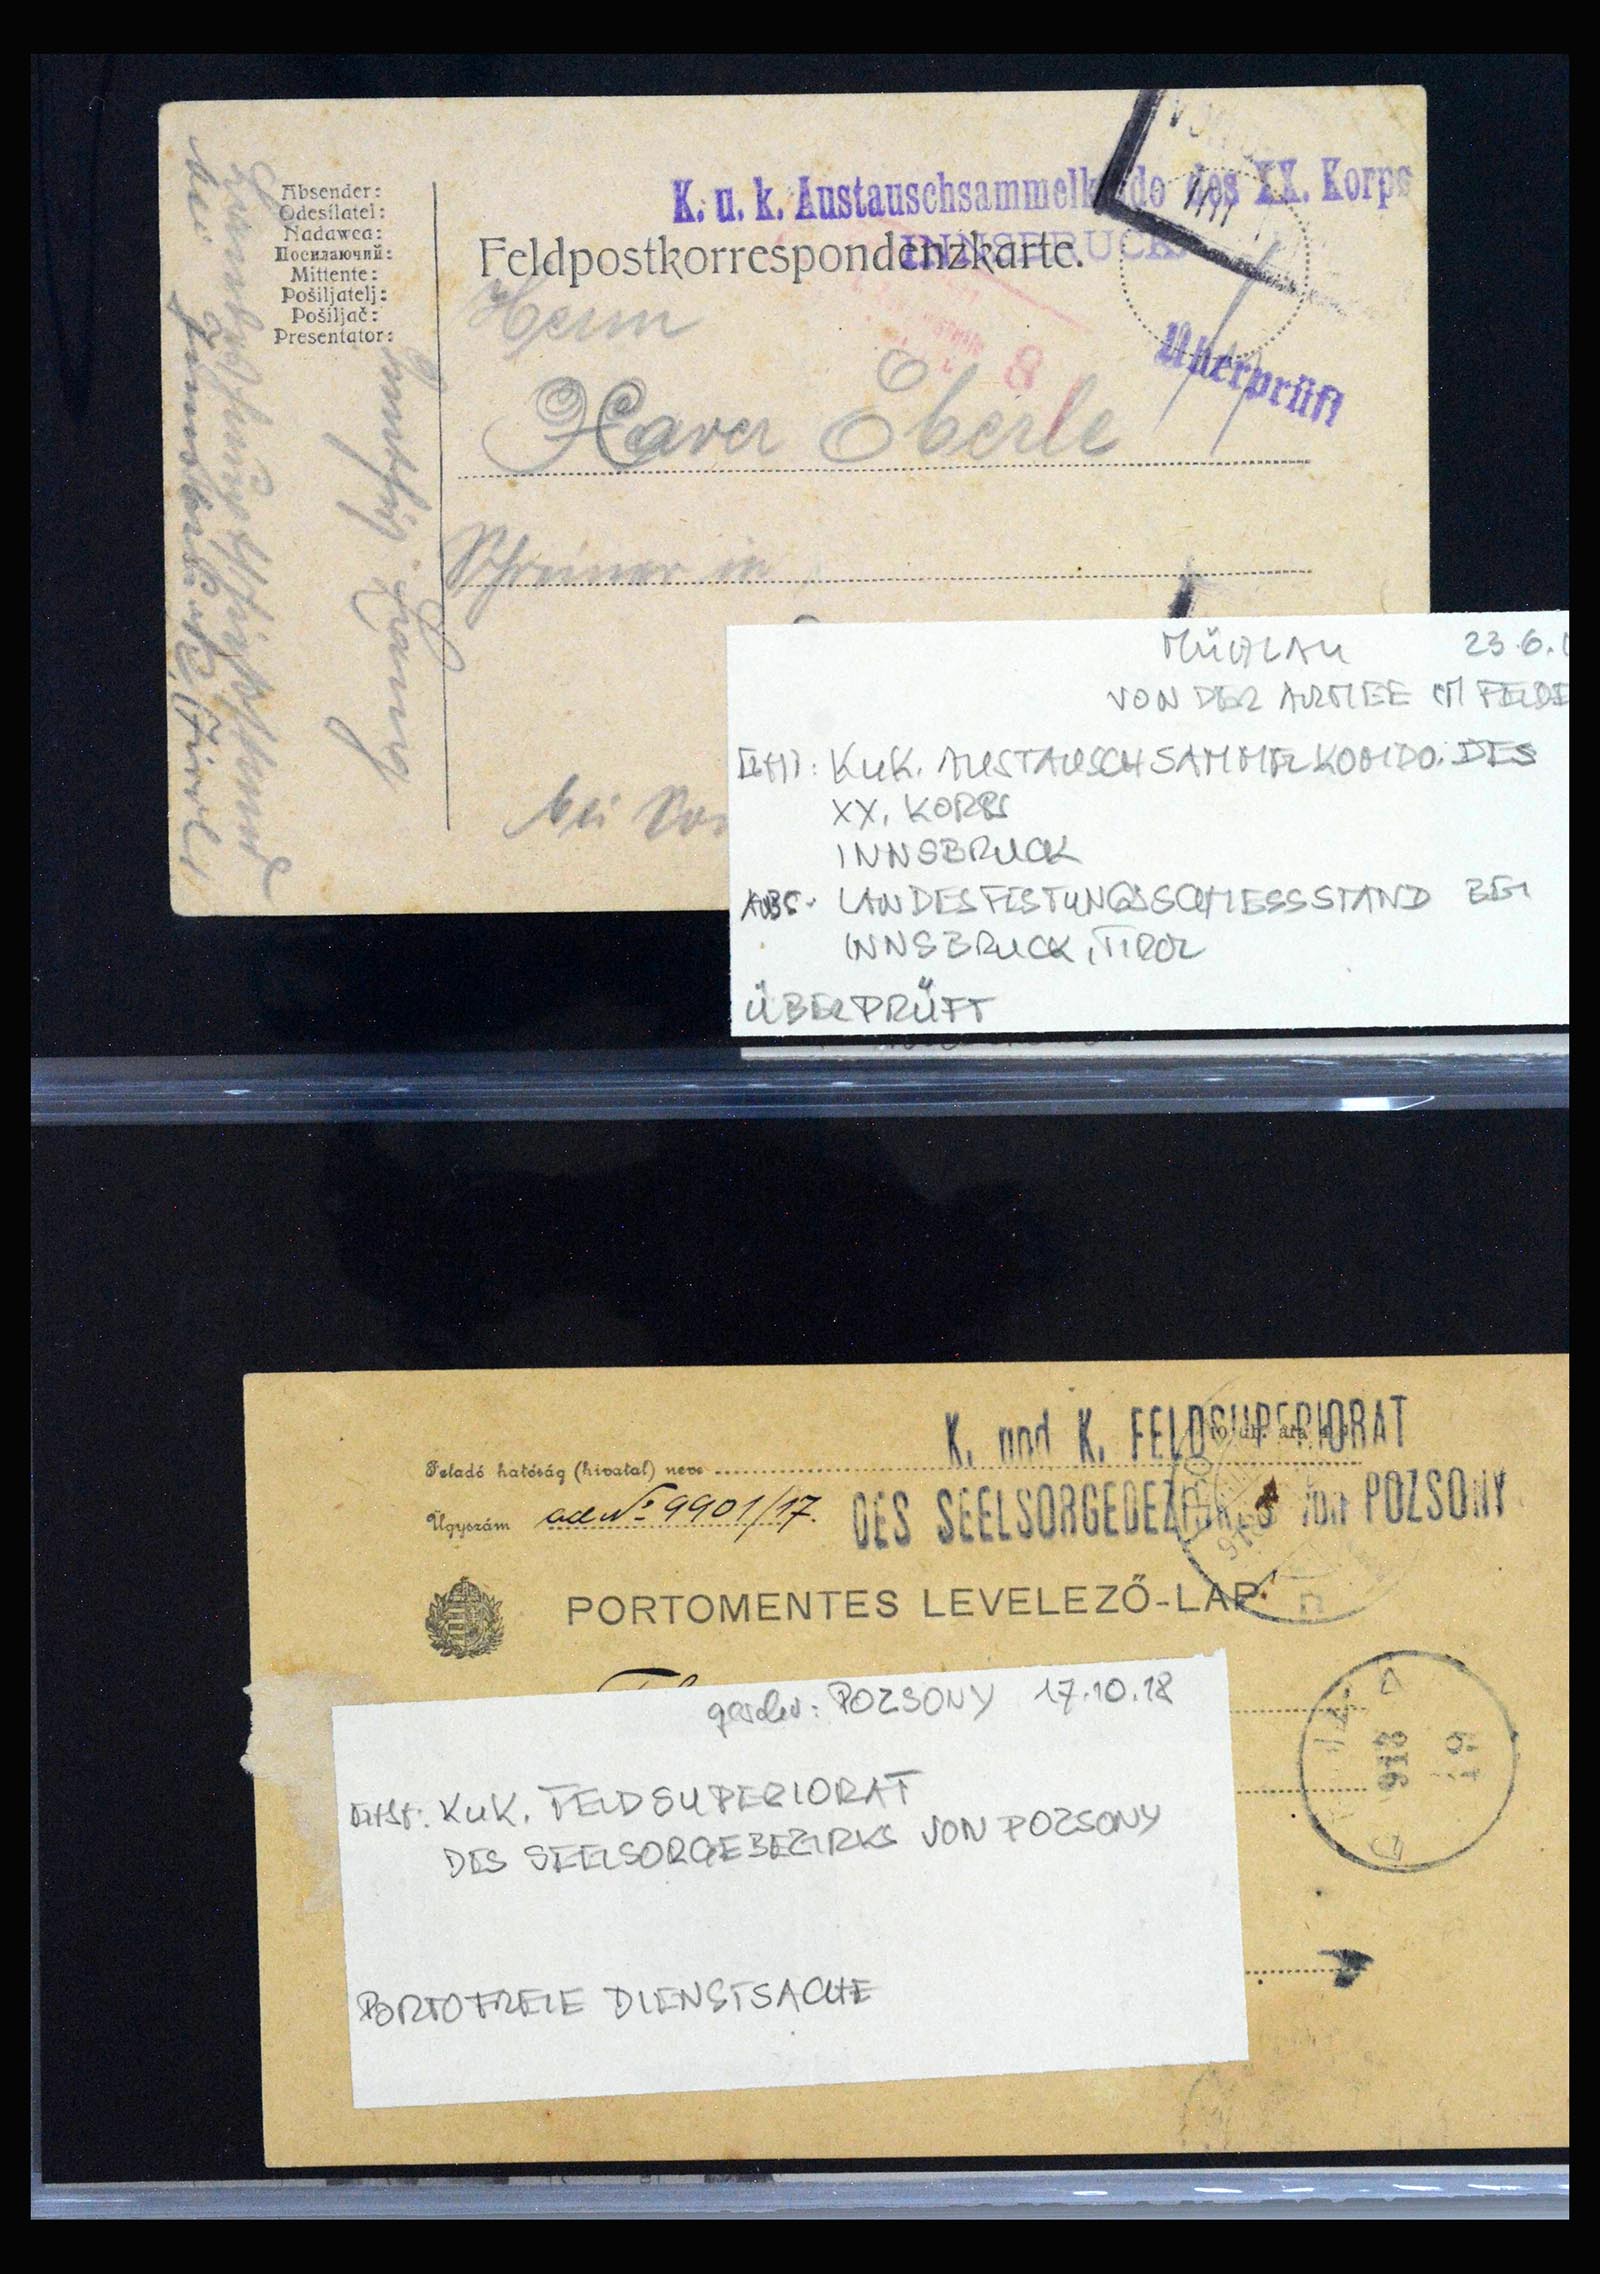 K. u. k. Austauschsammelk do des XX. Korps
INNSBRUCK
Absender:
Odesílatel:
Nadawca:
Посилаючий:
Mittente:
Pošiljatelj:
Pošiljač:
Presentator:
Feldpostkorrespondenzkarte.
Herrn
8
Überprüft
Xaver Eberle
Schreiner in
bei
MÜHLAU 23.6.1
VON DER ARMEE IM FELDE
KuK. AUSTAUSCHSAMMELKOMDO. DES
XX. KORPS
INNSBRUCK
LANDESFESTUNGSSCHIESSSTAND BEI
INNSBRUCK, TIROL
ÜBERPRÜFT
K. und K. FELDSUPERIORAT
Feladó hatóság (hivatal) neve
DES SEELSORGEBEZIRKES von POZSONY
Ügyszám ad No 9901/17.
PORTOMENTES LEVELEZŐ-LAP.
POZSONY 17.10.18
KuK. FELDSUPERIORAT
DES SEELSORGEBEZIRKS VON POZSONY
918
19
PORTOFREIE DIENSTSACHE